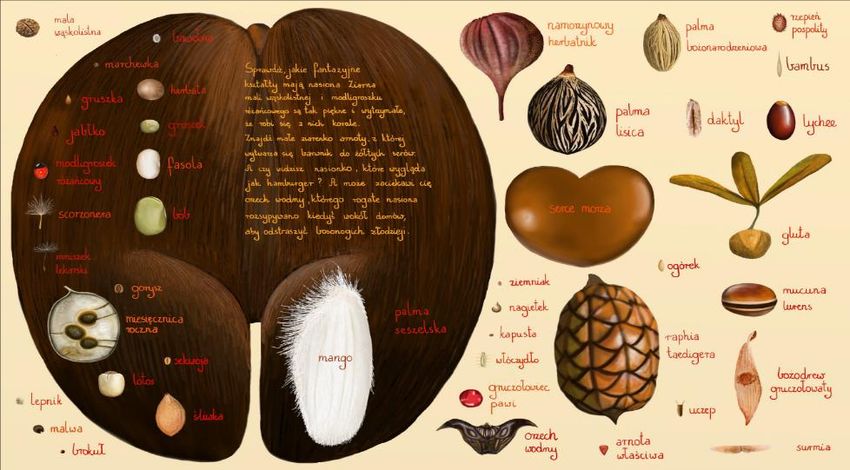 mała
wąskolistna
burczoch
marchewka
herbata
gruszka
groszek
jabłko
modligroszek
różańcowy
fasola
scorzonera
bób
mniszek
lekarski
gorysz
miesięcznica
roczna
sekwoja
lotos
śliwka
łepnik
malwa
brokuł
Sprawdź, jakie fantazyjne
kształty mają nasiona. Ziarna
mali wąskolistnej i modligroszku
różańcowego są tak piękne i wytrzymałe,
że robi się z nich korale.
Znajdź małe ziarenko arnoty, z której
wytwarza się barwnik do żółtych serów.
A czy widzisz nasionko, które wygląda
jak hamburger? A może zaciekawi cię
orzech wodny, którego rogate nasiona
rozsypywano kiedyś wokół domów,
aby odstraszyć bosonogich złodziei.
palma
seszelska
mango
namorzynowy
herbatnik
palma
bożonarodzeniowa
rzepień
pospolity
bambus
palma
lisica
daktyl
lychee
serce morza
gluta
ogórek
ziemniak
nagietek
kapusta
włóczydło
gruczołowiec
pawi
orzech
wodny
mucuna
urens
raphia
taedigera
uczep
bożodrzew
gruczołowaty
arnota
właściwa
surmia